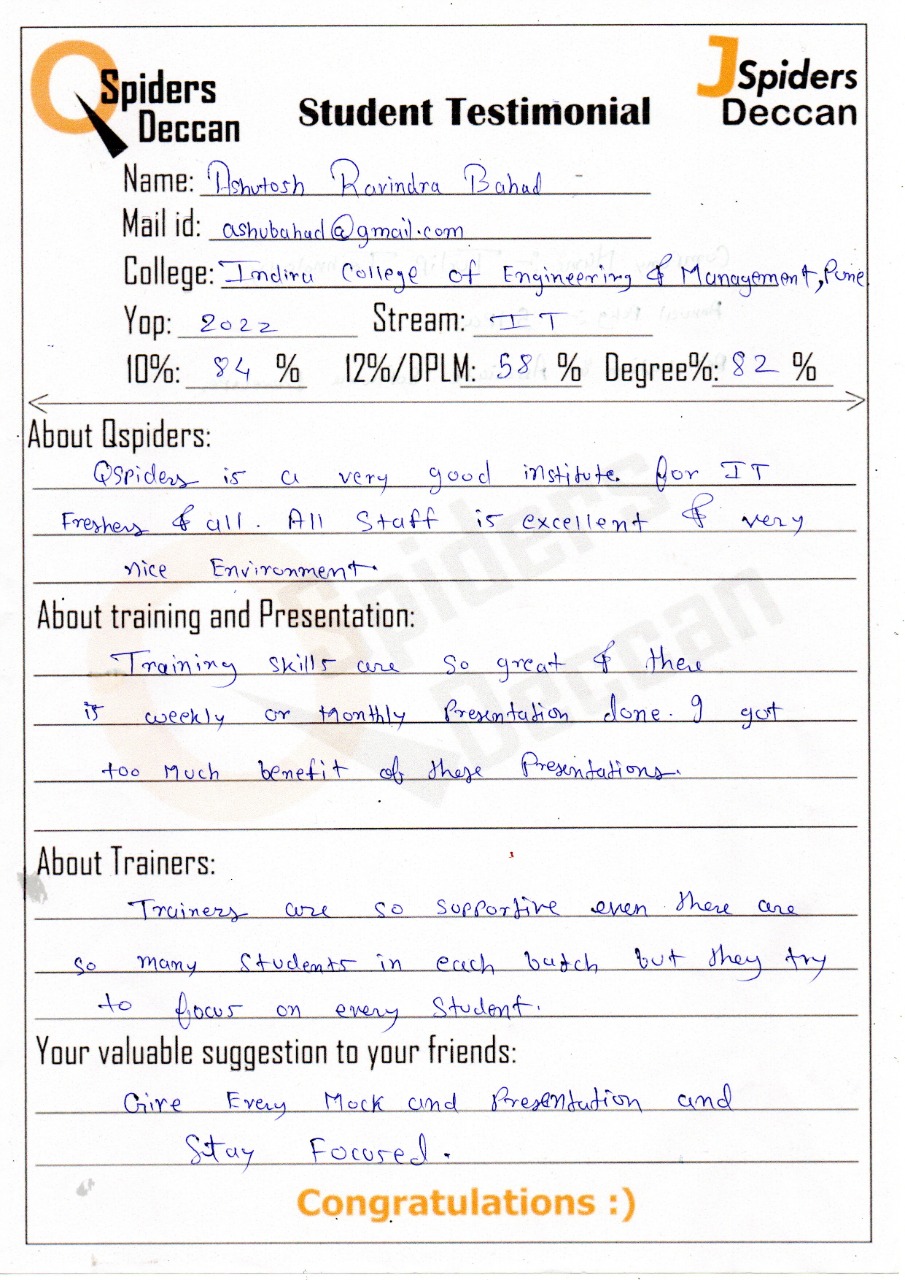 QSpiders Deccan
Student Testimonial
JSpiders Deccan
Name: Ashutosh Ravindra Bahad
Mail id: ashubahad@gmail.com
College: Indira College of Engineering & Management, Pune.
Yop: 2022 Stream: IT
10%: 84 % 12%/DPLM: 58 % Degree%: 82 %
About Qspiders:
QSpiders is a very good institute for IT
Freshers & all. All Staff is excellent & very
nice Environment.
About training and Presentation:
Training skills are so great & there
is weekly or Monthly Presentation done. I got
too Much benefit of these Presentations.
About Trainers:
Trainers are so supportive even there are
so many Students in each batch but they try
to focus on every Student.
Your valuable suggestion to your friends:
Give Every Mock and Presentation and
Stay Focused.
Congratulations :)
Spiders
Deccan